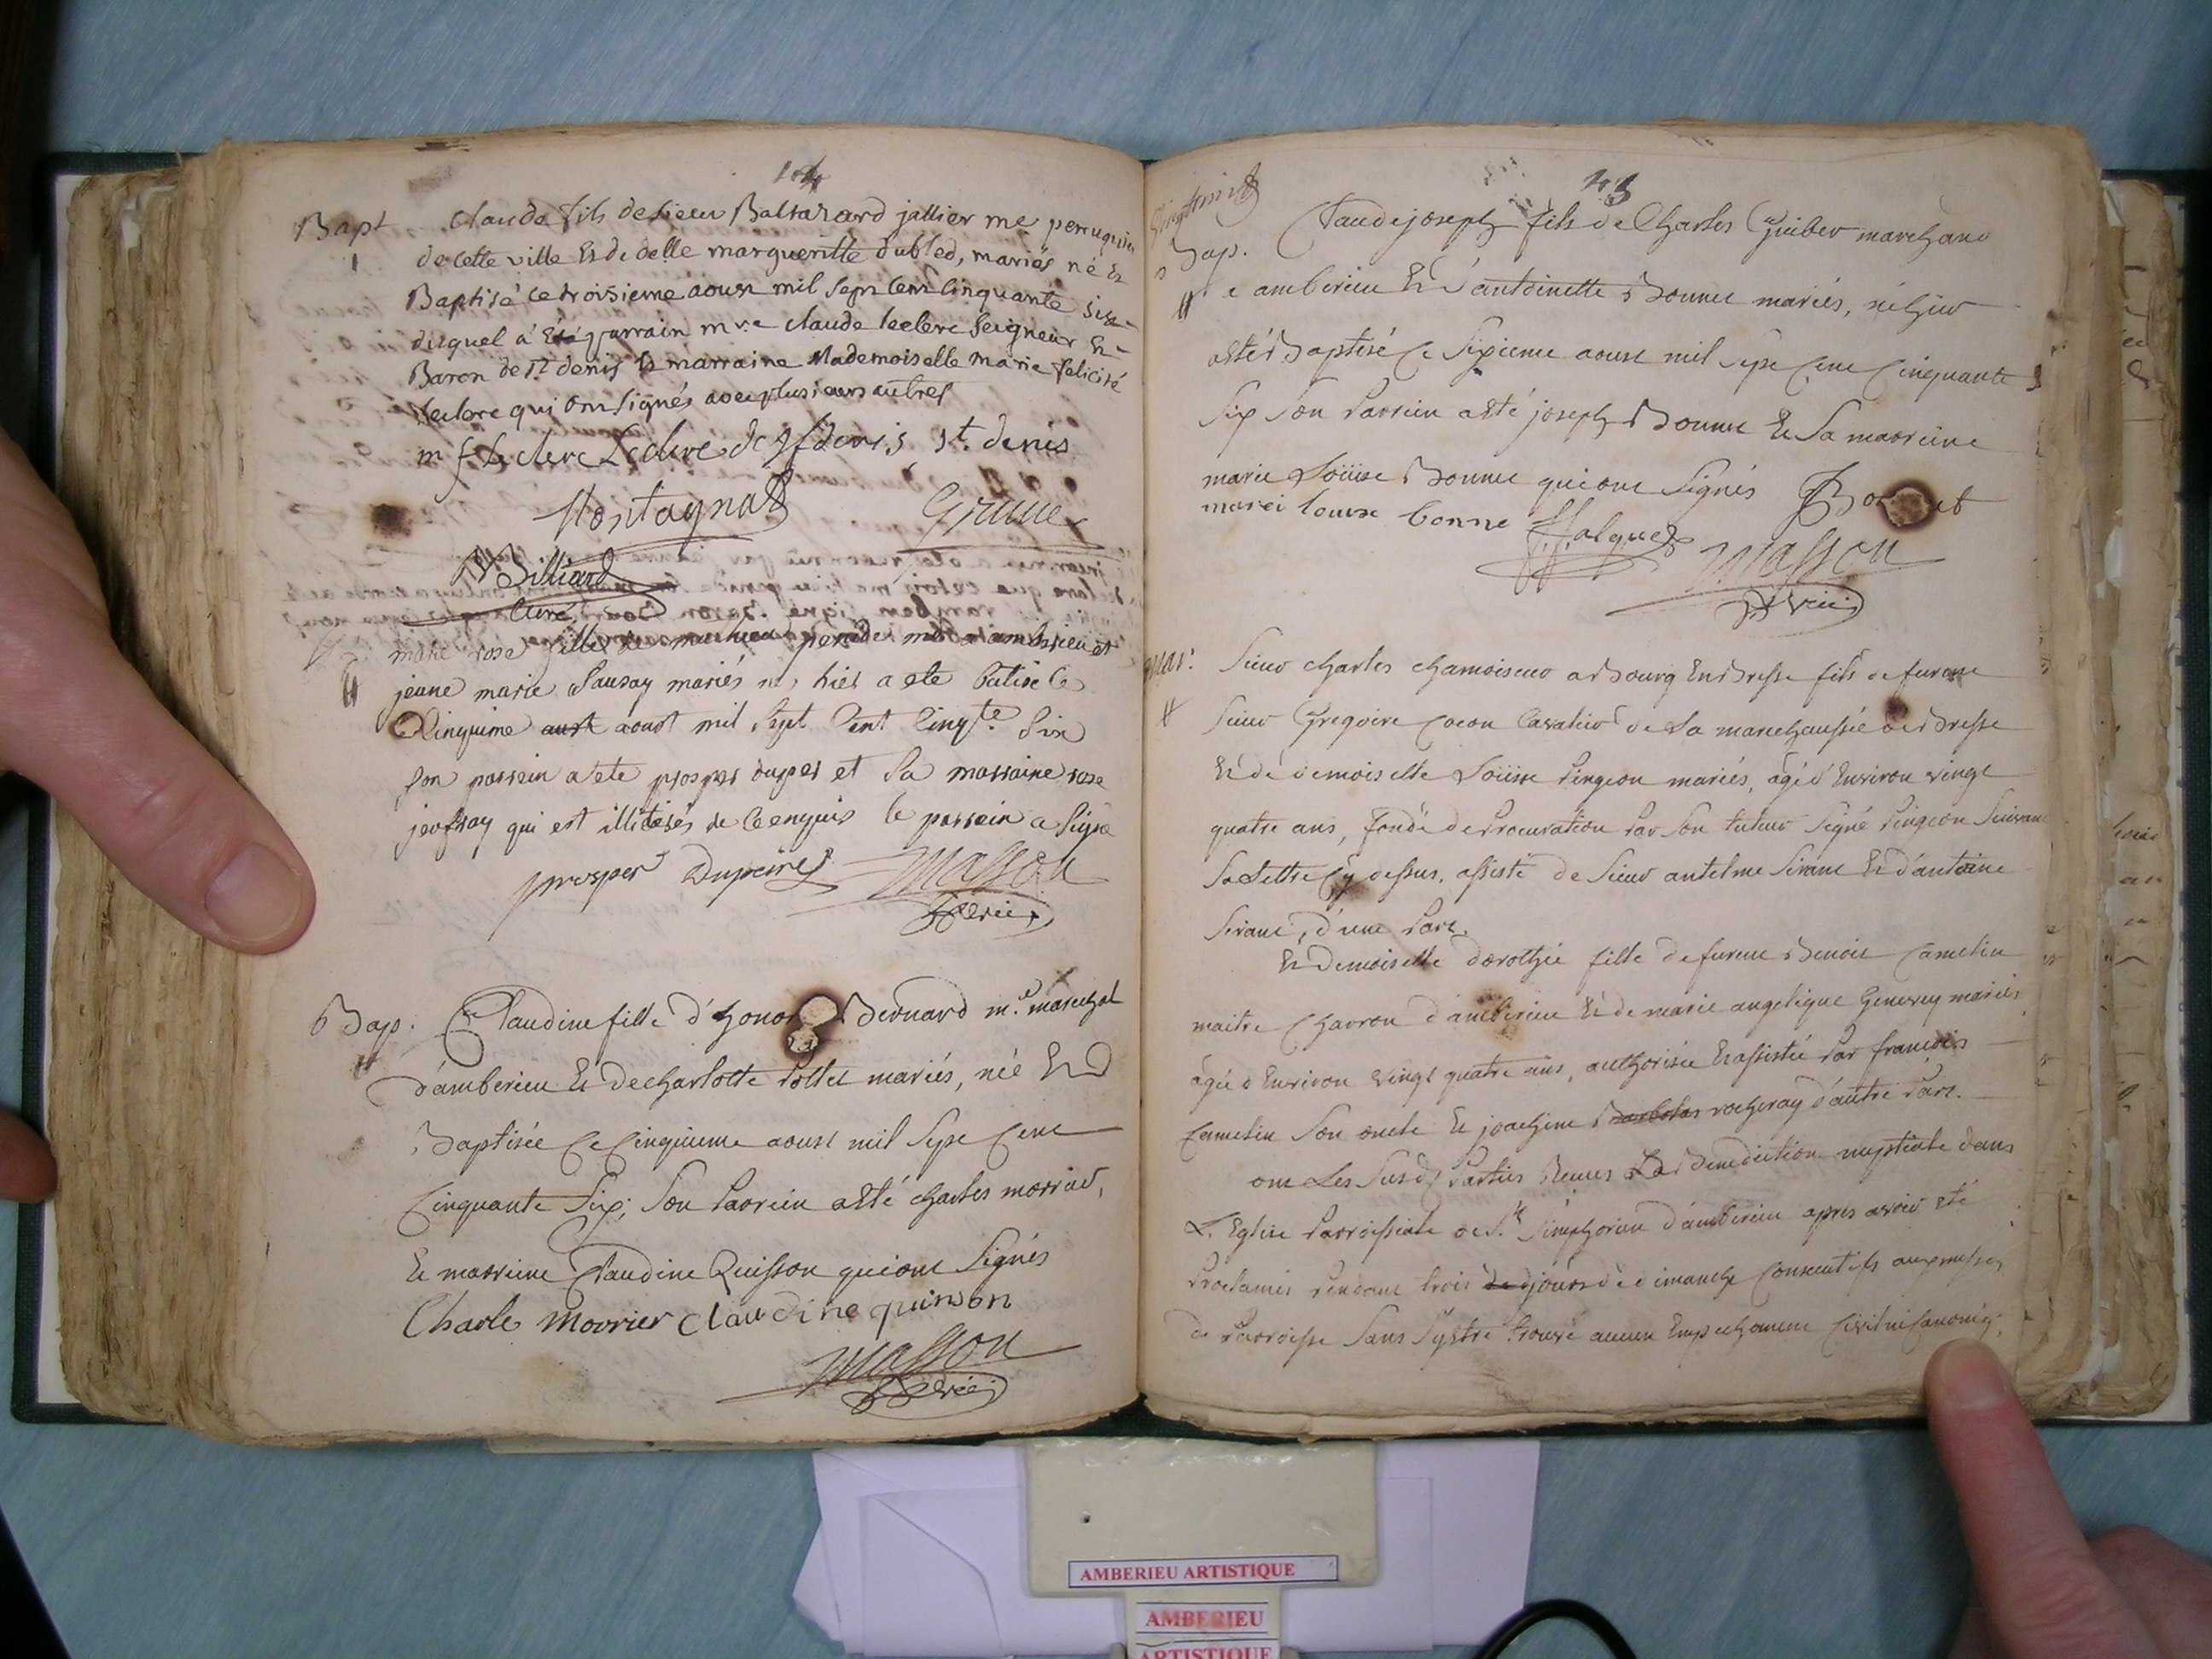 104
Bapt
Claude fils de sieur Baltazard jallier me peruquier
de cette ville Et de delle margueritte dubled, mariés né Et
Baptisé ce troisieme aoust mil sept cent cinquante six
duquel a été parrain mre claude leclerc seigneur Et
Baron de st denis Et marraine Mademoiselle marie felicité
leclerc qui ont signés avec plusieurs autres
m f Leclerc Leclerc de st denis st. denis
Montagnat
Grumet
Billiard
Curé
marie rose fille de mathieu pende md a ambrieu et
jeane marie Sausay mariés ne hiet a ete batise le
Cinquime aust aoust mil sept cent cinqte six
son parrein a ete prosper duper et sa marraine rose
jeofray qui est illiterés de ce enquis le parrein a signé
prosper Dupeires Masson
Vic.
Bap. Claudine fille d'honoré Bernard me. marechal
d'amberieu Et de charlotte Pottet mariés, née Et
Baptisée ce cinquieme aoust mil sept cent
cinquante six, son parrein a esté charles morrier,
Et marreine Claudine Quisson qui ont signés
Charle morrier claudine quinson
Masson
Vic.
103
Bap. Claude joseph fils de Charles Guiber marchand
d'amberieu Et d'antoinette Bonnet mariés, né hier
a esté Baptisé ce sixieme aoust mil sept cent cinquante
six son parrein a esté joseph Bonnet Et sa marreine
marie Loüise Bonnet qui ont signés J Bonnet
marei louise bonne
Masson
Vic.
mar. Sieur charles chamoiseur a Bourg En Bresse fils de furent
sieur Gregoire cocon Cavalier de la marechaussée de Bresse
Et de demoiselle Loüise Pingeon mariés, âgé d'Environ vingt
quatre ans, fondé de Procuration Par son tuteur signé Pingeon suivant
sa Lettre cy dessus, assisté de sieur antelme sirand Et d'antoine
sirand, d'une Part.
Et Demoiselle dorothée fille de furent Benoit Camelin
maitre charron d'amberieu Et de marie angelique Genevey mariés
âgée d'Environ vingt quatre ans, authorisée Et assistée Par françois
Camelin son oncle Et joachime rocheray d'autre Part.
ont Les susd. Parties Reçues La Benediction nuptiale dans
L'Eglise Parroissiale de St. simphorien d'amberieu apres avoir Eté
Proclamés Pendant trois jours de dimanche consecutifs aux messes
de Parroisse sans s'y etre trouvé aucun Empechement Civil ni Canoniq.
AMBERIEU ARTISTIQUE
AMBERIEU
ARTISTIQUE